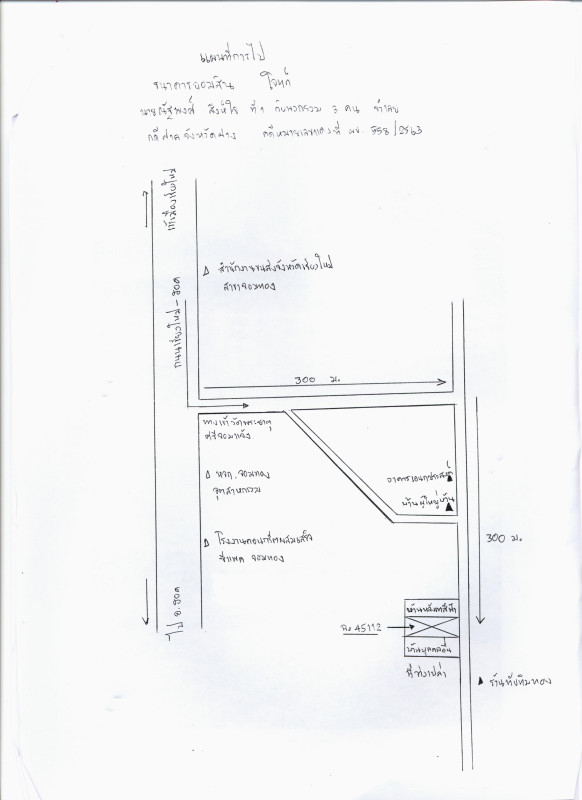 แผนที่การไป
ธนาคารออมสิน โจทก์
นายณัฐพงศ์ สิงห์ใจ ที่ 1 กับพวกรวม 3 คน จำเลย
คดีศาลจังหวัดฝาง คดีหมายเลขแดงที่ ผบ. 558/2563
เข้าเมืองเชียงใหม่
สำนักงานขนส่งจังหวัดเชียงใหม่
สาขาจอมทอง
ถนนเชียงใหม่-ฮอด
300 ม.
ทางเข้าวัดพระธาตุ
ศรีจอมแจ้ง
อาคารเอนกประสงค์
หจก. จอมทอง
อุตสาหกรรม
บ้านผู้ใหญ่บ้าน
โรงงานคอนกรีตผสมเสร็จ
ซีแพค จอมทอง
300 ม.
ไป อ.ฮอด
บ้านหลังคาสีฟ้า
ฉ. 45112
บ้านบุคคลอื่น
ที่ว่างเปล่า
ร้านทับทิมทอง